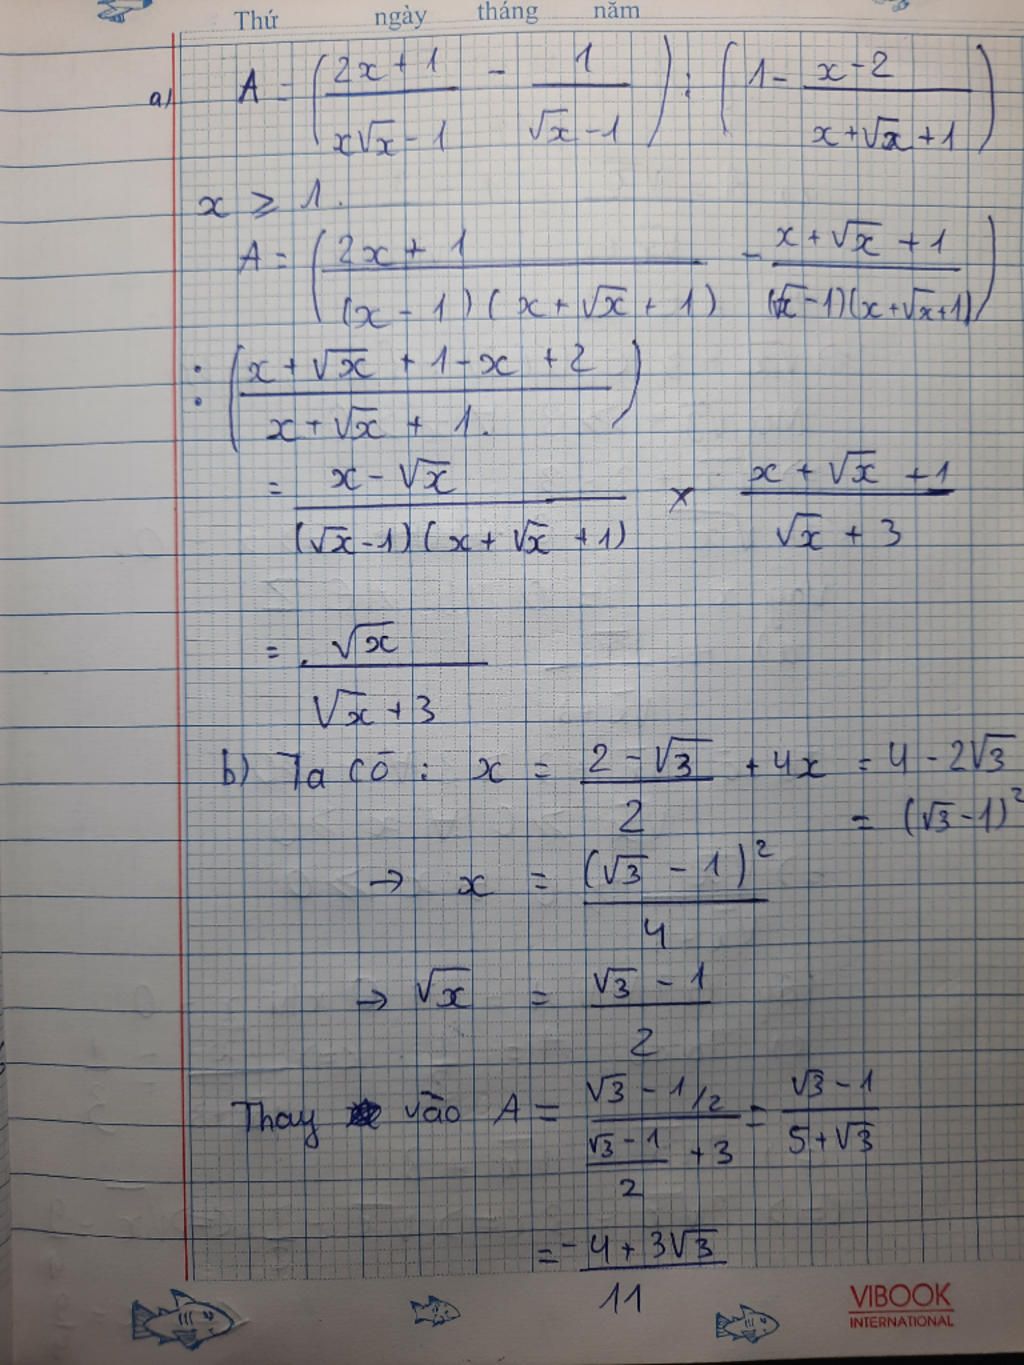 Thứ ngày tháng năm
a) A = ( (2x + 1)/(x√x - 1) - 1/(√x - 1) ) : ( 1 - (x - 2)/(x + √x + 1) )
x ⩾ 1.
A = ( (2x + 1)/((x - 1)(x + √x + 1)) - (x + √x + 1)/((√x - 1)(x + √x + 1)) )
: ( (x + √x + 1 - x + 2)/(x + √x + 1.) )
= (x - √x)/((√x - 1)(x + √x + 1)) × (x + √x + 1)/(√x + 3)
= √x/(√x + 3)
b) Ta có : x = (2 - √3)/2 + 4x = 4 - 2√3
= (√3 - 1)²
→ x = (√3 - 1)²/4
→ √x = (√3 - 1)/2
Thay vào A = (√3 - 1/2)/((√3 - 1)/2 + 3) = (√3 - 1)/(5 + √3)
= (-4 + 3√3)/11
VIBOOK
INTERNATIONAL